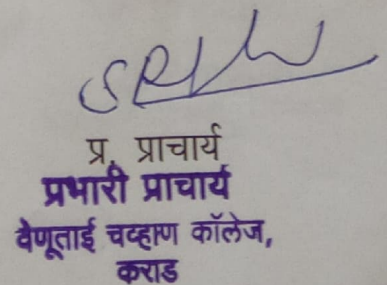 प्र. प्राचार्य
प्रभारी प्राचार्य
वेणूताई चव्हाण कॉलेज,
कराड